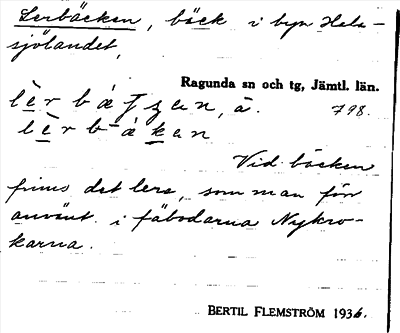 Lerbäcken, bäck i byn Hela-
sjölandet,
Ragunda sn och tg, Jämtl. län.
798.
Vid bäcken
finns det lera, som man för
använt i fäbodarna Nykro-
karna.
BERTIL FLEMSTRÖM 1936.